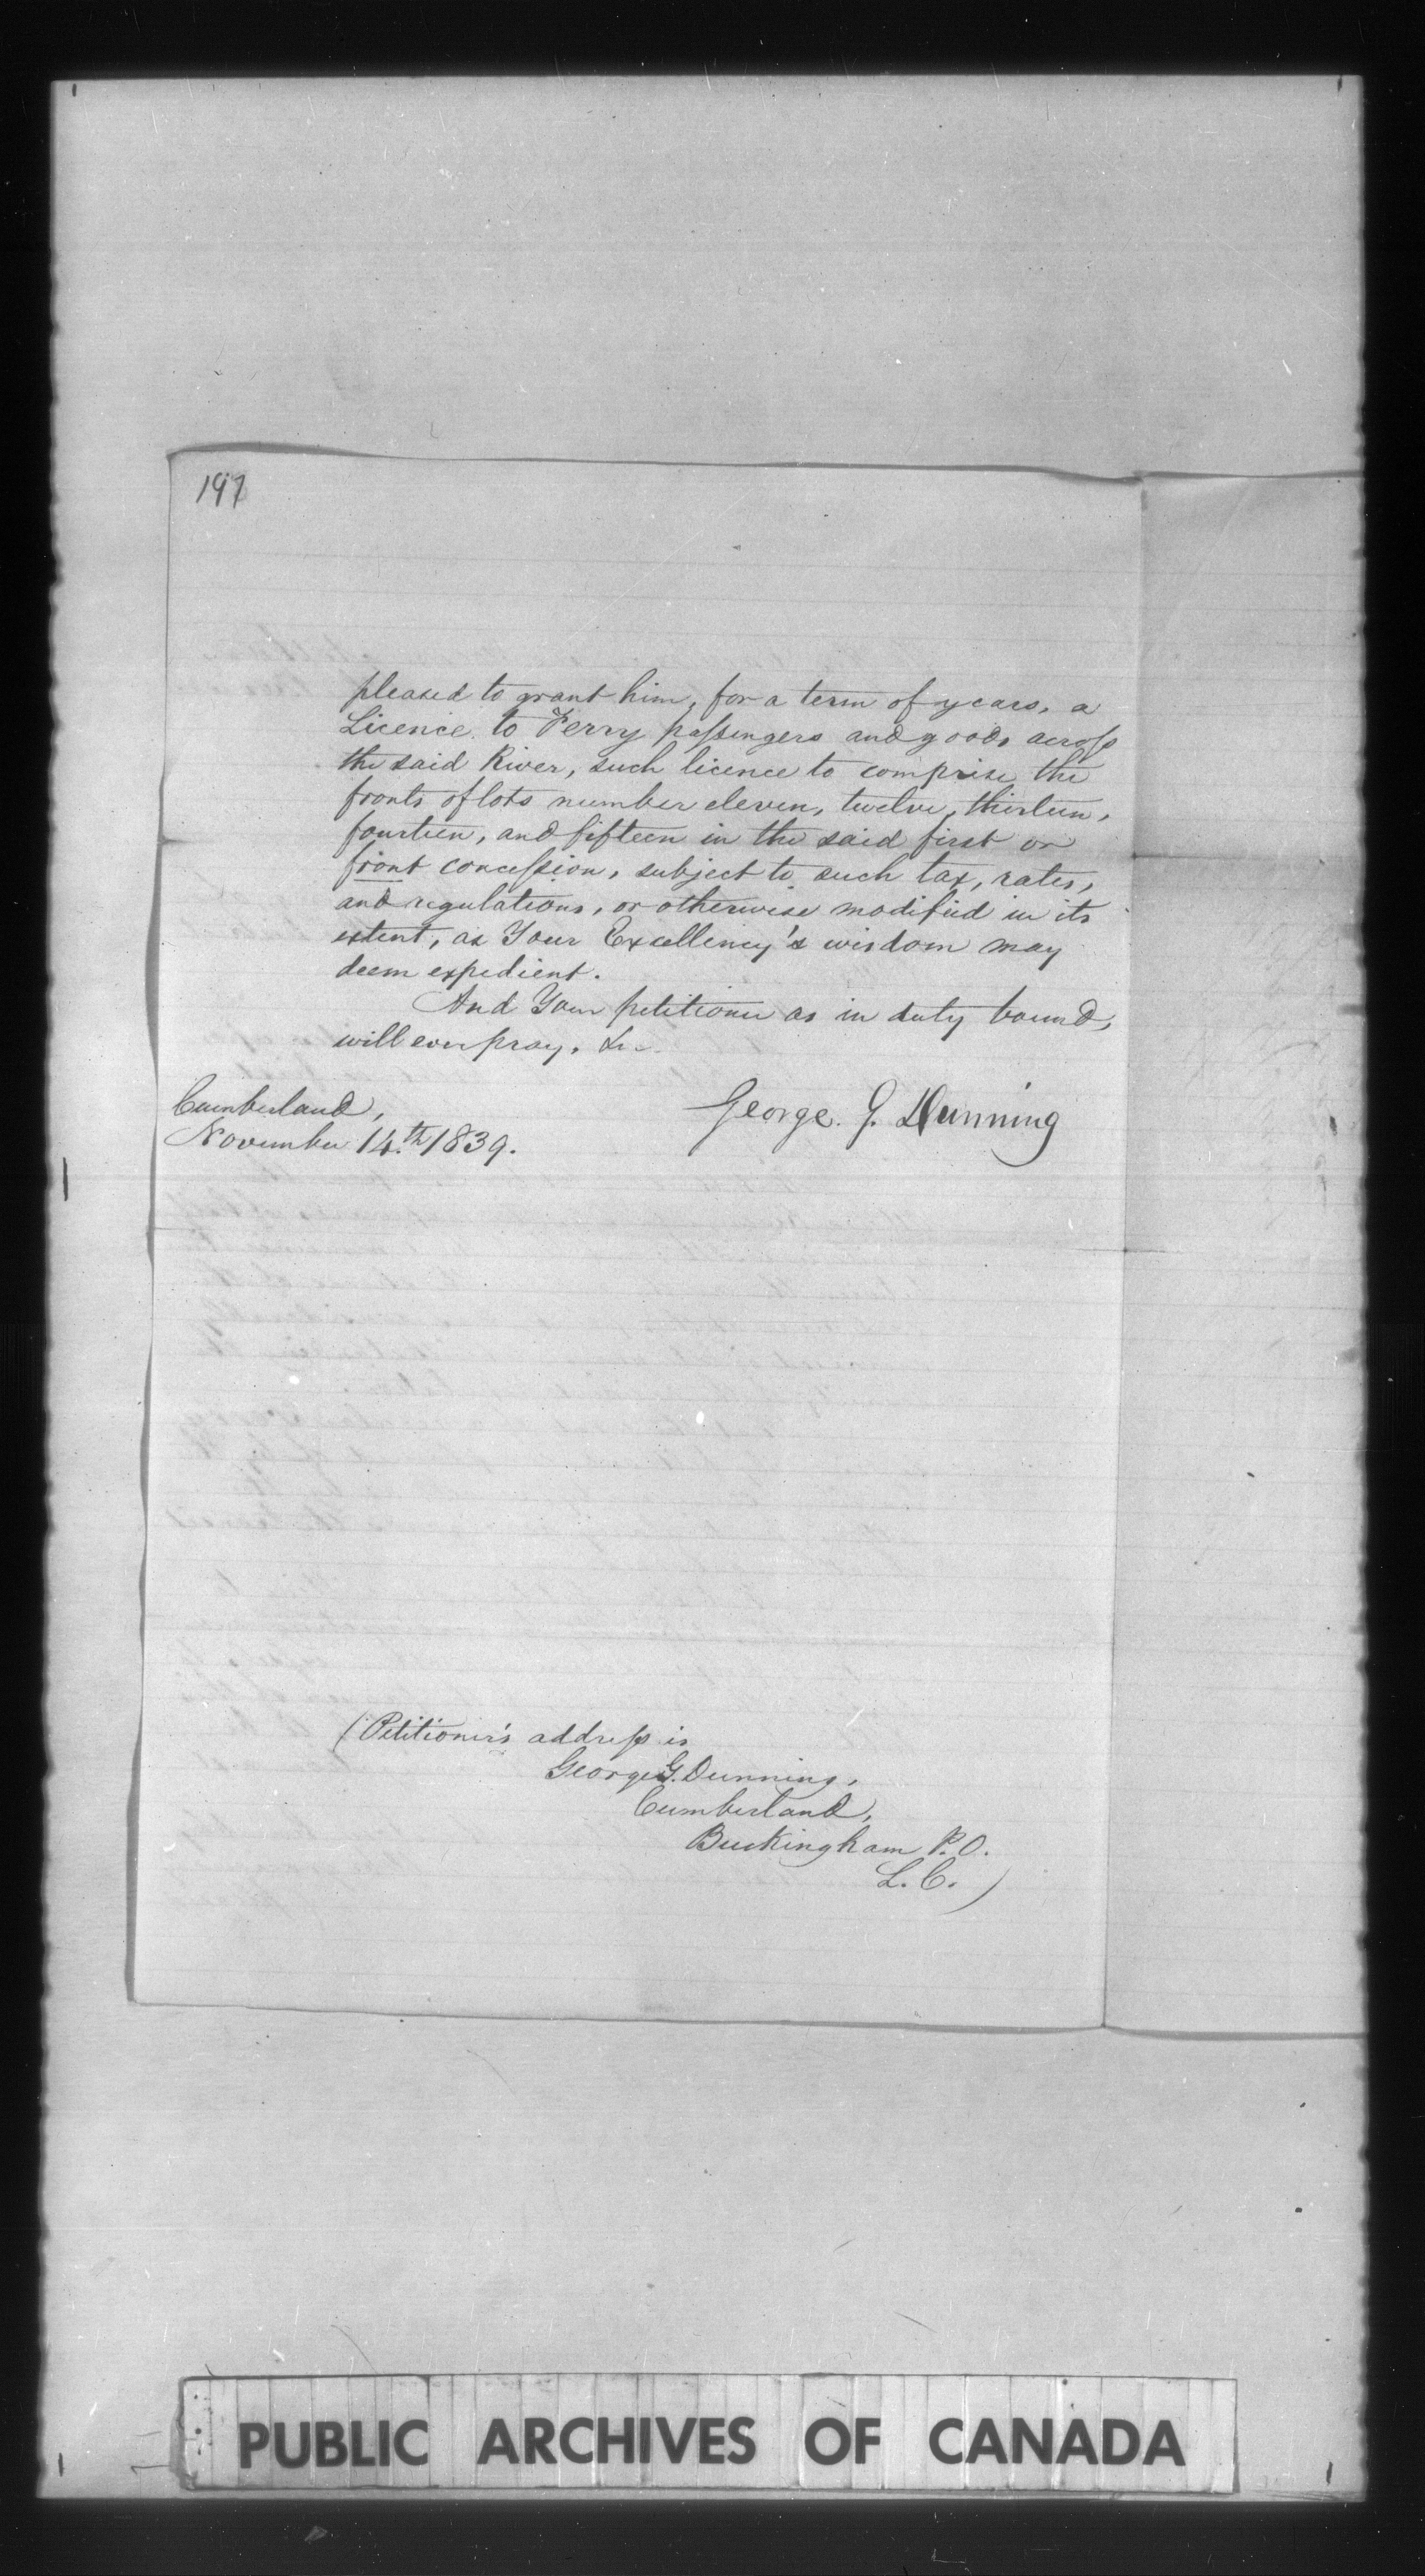 197
pleased to grant him, for a term of years, a
Licence to Ferry passengers and goods across
the said River, such licence to comprise the
fronts of lots number eleven, twelve, thirteen,
fourteen, and fifteen in the said first or
front concession, subject to such tax, rates,
and regulations, or otherwise modified in its
extent, as Your Excellency's wisdom may
deem expedient.
And Your petitioner as in duty bound,
will ever pray, &c.
Cumberland,
November 14.th 1839.
George. G. Dunning
(Petitioner's address is
George G. Dunning,
Cumberland,
Buckingham P.O.
L.C.)
PUBLIC ARCHIVES OF CANADA